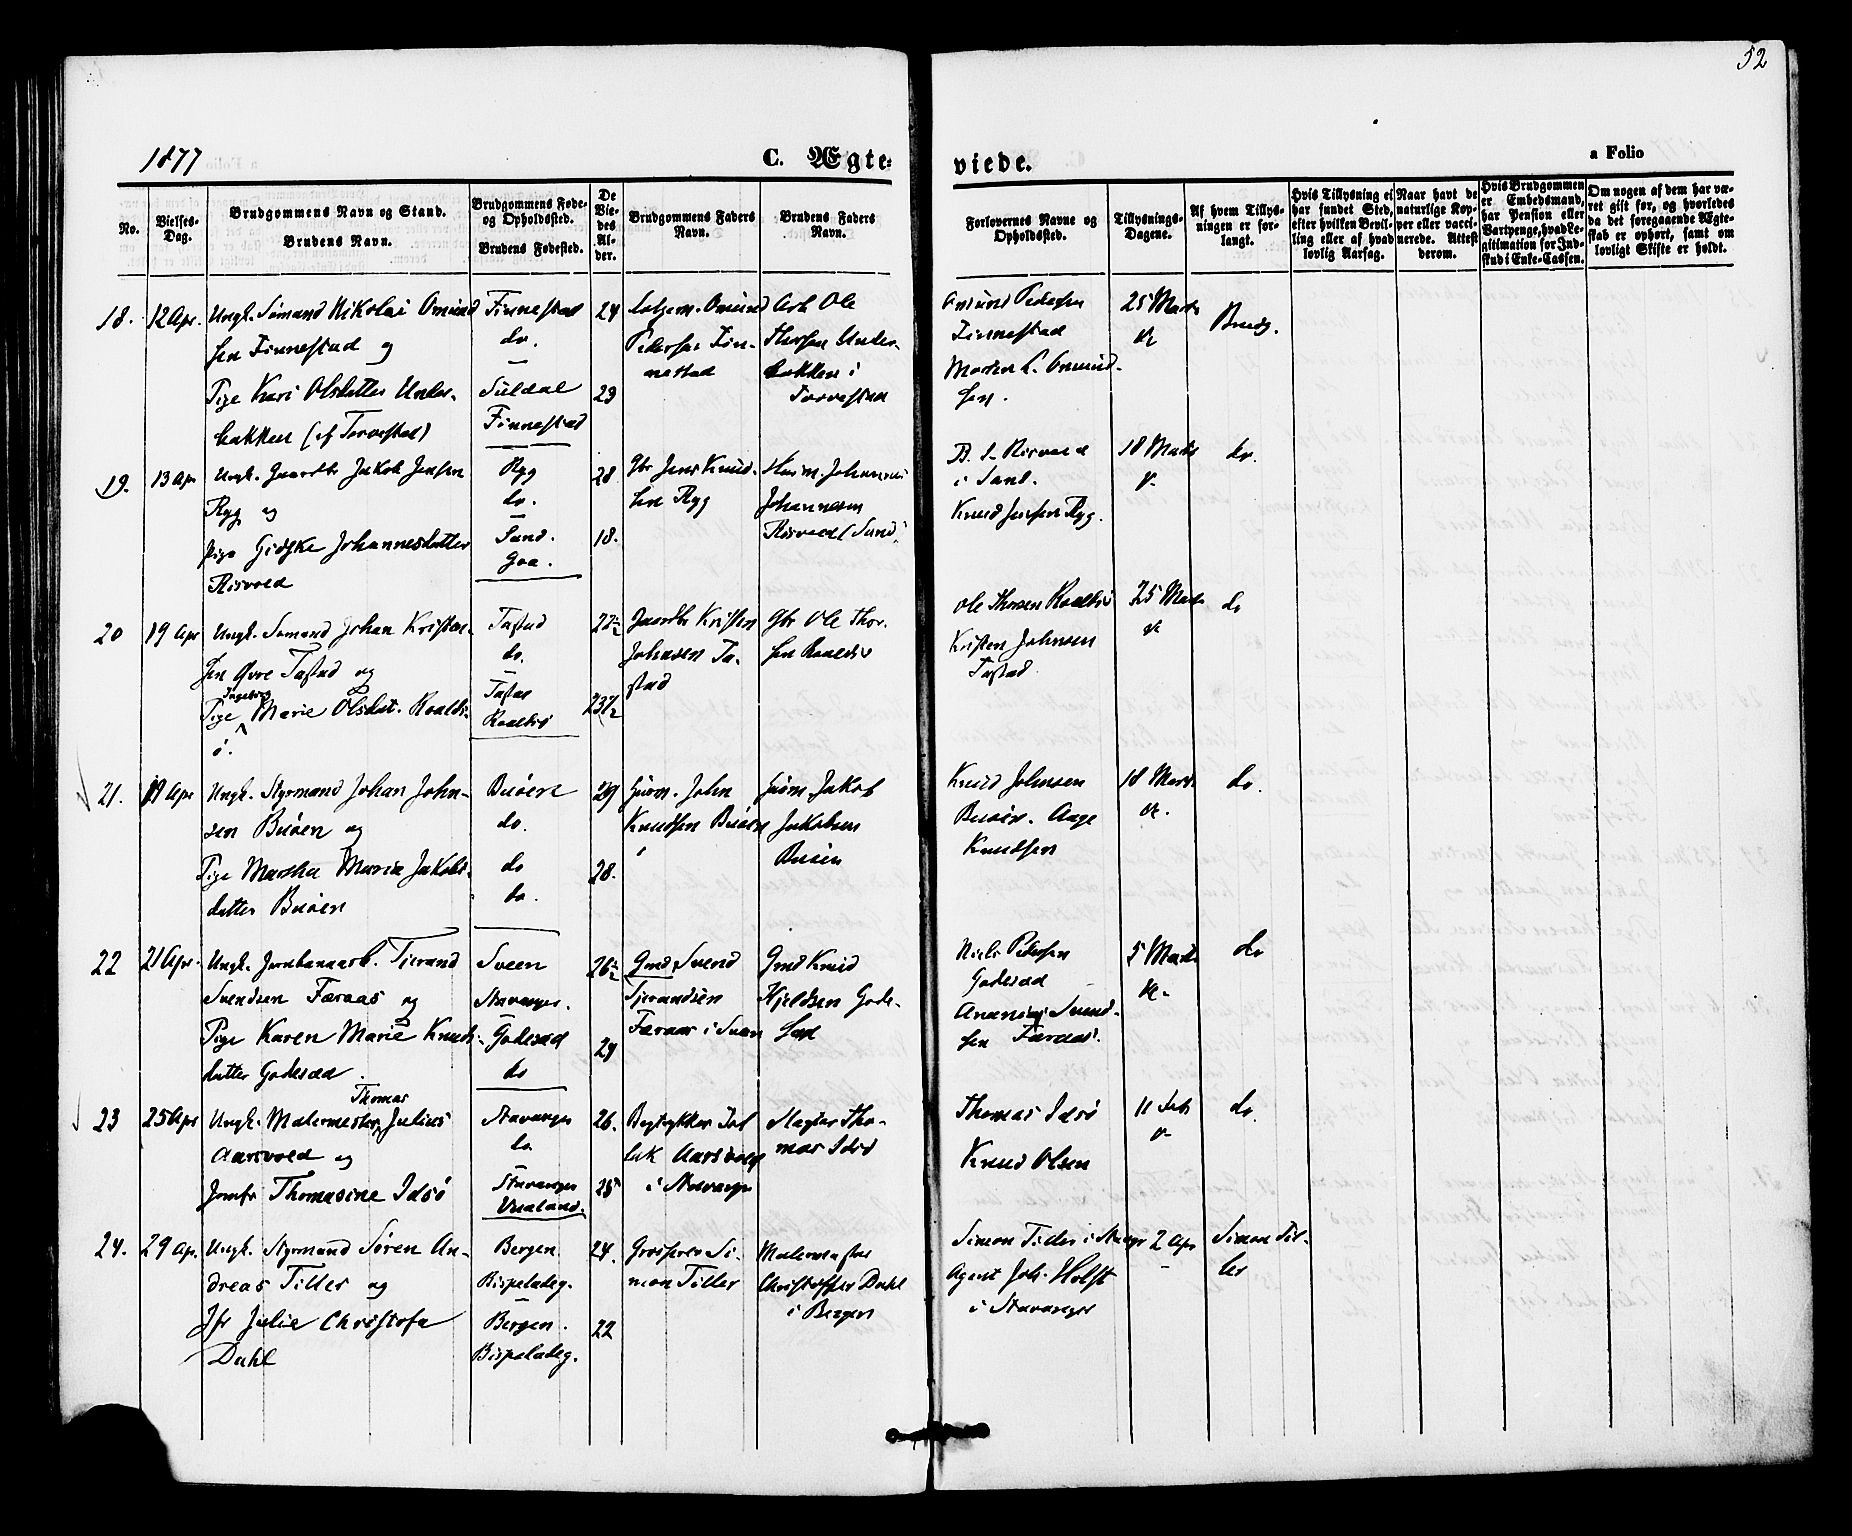 52
1877
C. Ægte-
viede.
a Folio
No.
Vielses-
Dag.
Brudgommens Navn og Stand.
Brudens Navn.
Brudgommens Føde-
og Opholdssted.
Brudens Fødested.
De
Vie-
des
Al-
der.
Brudgommens Faders
Navn.
Brudens Faders
Navn.
Forlovernes Navne og
Opholdssted.
Tillysnings-
Dagene.
Af hvem Tillys-
ningen er for-
langt.
Hvis Tillysning ei
har fundet Sted,
efter hvilken Bevil-
ling eller af hvad
lovlig Aarsag.
Naar havt de
naturlige Kop-
per eller vacci-
nerede. Attest
derom.
Hvis Brudgommen
er Embedsmand,
har Pension eller
Vartpenge, hvad Le-
gitimation for Ind-
skud i Enke-Cassen.
Om nogen af dem har væ-
ret gift før, og hvorledes
da det foregaaende Ægte-
skab er ophørt, samt om
lovligt Skifte er holdt.
18. 12 Apr. Ungk. Sømand Nikolai Omund
sen Finnestad og
Tige Kari Olsdatter Under-
bakken (af Torvestad)
Finnestad
do.
Suldal
Finnestad
24
23
Omund
Pedersen Fin-
nestad
Arb. Ole
Thorsen Under-
bakken i
Torvestad
Omund Pedersen
Finnestad
Morten L. Omund-
sen.
25 Marts
Brudg.
19. 13 Apr Ungk. Gaardbr Jakob Jensen
Ryg og
Pige Gidske Johannesdatter
Risvold
Ryg
do.
Sand.
Goa.
28
18.
Gbr Jens Knud-
sen Ryg
Husm. Johannes
Johannesen
Risvold (Sand)
i Sand.
Knud Jensen Ryg.
18 Marts
do.
20 19 Apr Ungk. Sømand Johan Kristen-
sen Øvre Tastad og
Ingeborg
Tige Marie Olsdat. Roalds-
ø.
Tastad
do.
Tastad
Roaldsø
22½
23½
Gaardbr Kristen
Johnsen Ta-
stad
Gbr Ole Thor-
sen Roaldsø
Ole Thorsen Roaldsø
Kristen Johnsen
Tastad
25 Marts
do
21. 19 Apr Ungk. Styrmand Johan John-
sen Buøen og
Tige Martha Maria Jakobs-
datter Buøen
Buøen
do.
do
do.
29
28.
John
Knudsen Buøen
Jakob
Jakobsen
Buøen
Knud Johnsen
Buøen. Aage
Knudsen
18 Marts
do.
22 21 Apr. Ungk. Jernbanearb. Tjerand
Svendsen Færaas og
Pige Karen Marie Knuds-
datter Godesæd.
Sveen
Stavanger.
Godesæd
do
26½
24
Gmd Svend
Tjerandsen
Færaas i Sveen
Gmd Knud
Kjeldsen Gode-
sæd
Niels Pedersen
Godesæd
Ananias Svend-
sen Færaas.
5 Marts
do
23 25 Apr Ungk. Malermester Thomas Julius
Aarsvold og
Jomfr Thomasine Idsø
Stavanger
do.
Stavanger
Vaaland.
26.
25
Bogtykker Jal
Aarsvold
i Stavanger
Slagter Tho-
mas Idsø
Thomas Idsø
Knud Olsen
11 Feb
do.
24. 29 Apr. Ungk. Styrmand Søren An-
dreas Tiller og
Jfr Julie Christofa
Dahl
Bergen
Bispeladeg.
Bergen.
Bispeladeg.
24.
22
Si-
mon Tiller
Malermester
Christoffer Dahl
i Bergen
Simon Tiller i Stavgr
Agent Joh. Holst
i Stavanger
2 Apr
Simon Til-
ler